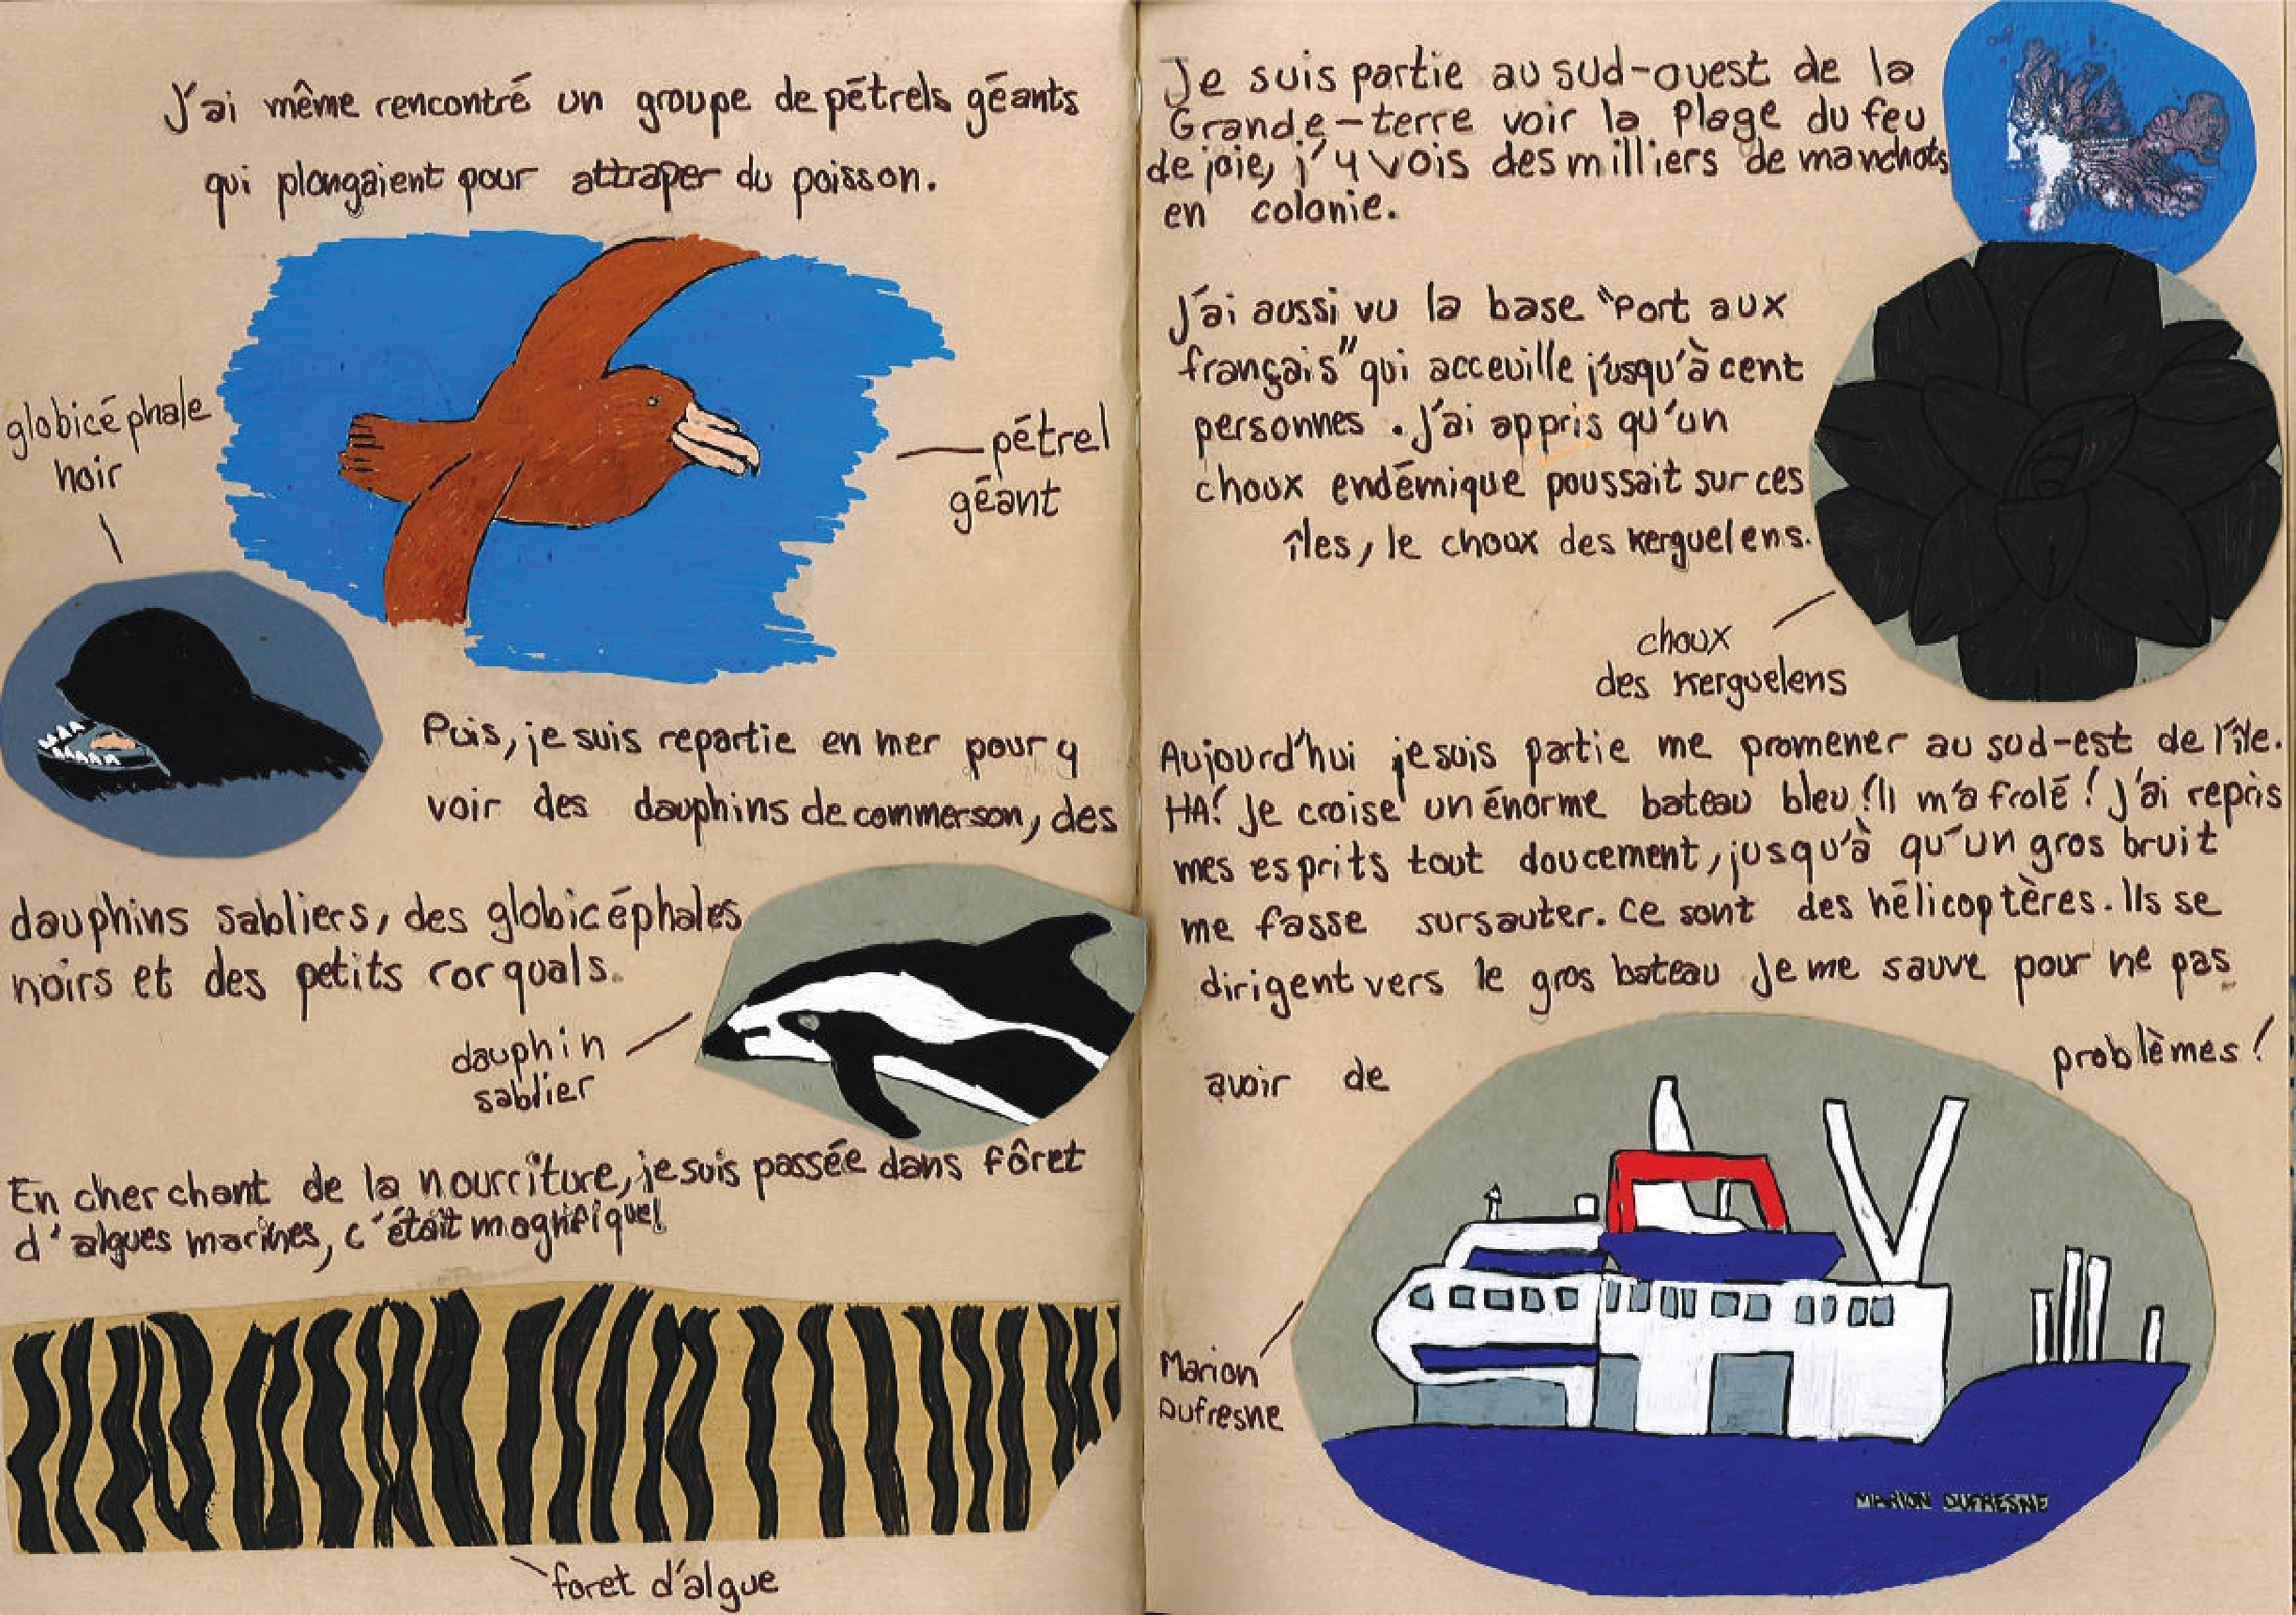 J'ai même rencontré un groupe de pétrels géants
qui plongaient pour attraper du poisson.
globicéphale
noir
pétrel
géant
Puis, je suis repartie en mer pour y
voir des dauphins de commerson, des
dauphins sabliers, des globicéphales
noirs et des petits rorquals.
dauphin
sablier
En cherchant de la nourriture, je suis passée dans fôret
d'algues marines, c'était magnifique!
foret d'algue
Je suis partie au sud-ouest de la
Grande-terre voir la Plage du feu
de joie, j'y vois des milliers de manchots
en colonie.
J'ai aussi vu la base "Port aux
français" qui acceuille jusqu'à cent
personnes. J'ai appris qu'un
choux endémique poussait sur ces
îles, le choux des kerguelens.
choux
des kerguelens
Aujourd'hui je suis partie me promener au sud-est de l'île.
HA! Je croise un énorme bateau bleu! Il m'a frolé! J'ai repris
mes esprits tout doucement, jusqu'à qu'un gros bruit
me fasse sursauter. Ce sont des hélicoptères. Ils se
dirigent vers le gros bateau Je me sauve pour ne pas
avoir de problèmes!
Marion
Dufresne
MARION DUFRESNE